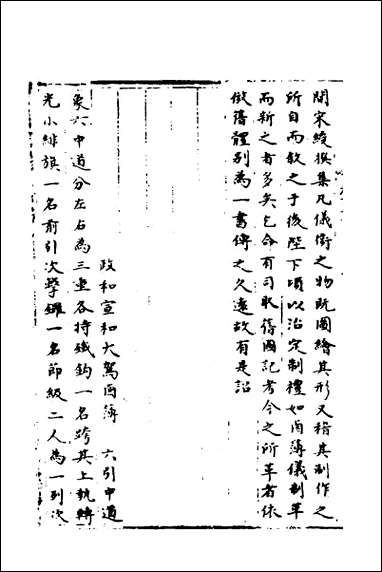 間宋綬撰集凡儀衛之物既圖繪其形又稽其制作之
所自而敘之于後陛下頃以治定制禮如鹵簿儀制革
而新之者多矣乞命有司取舊圖記考今之所革者依
倣舊體列為一書傳之久遠故有是詔
政和宣和大駕鹵簿 六引中道
象六中道分左右為三重各持鐵鈎一名跨其上執轉
光小緋旗一名前引次擎鑼一名節級二人為一列次